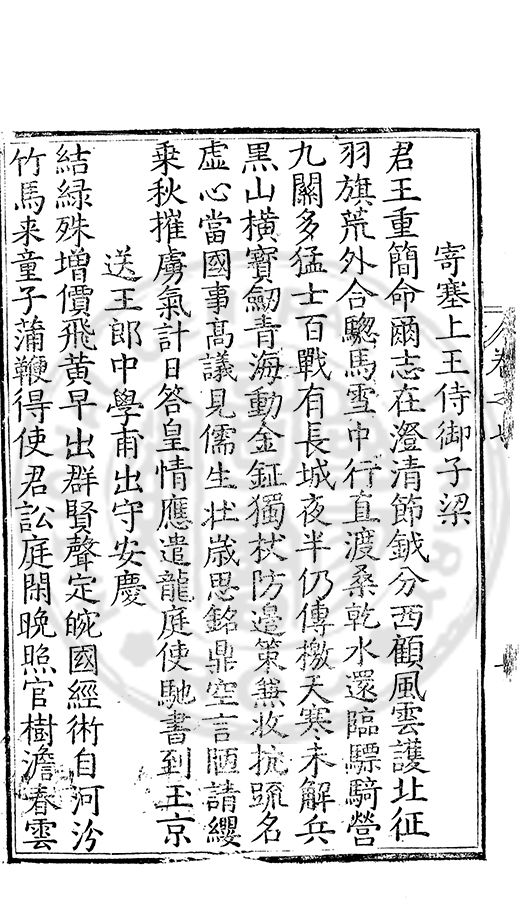 寄塞上王侍御子梁
君王重簡命爾志在澄清節鉞分西顧風雲護北征
羽旗荒外合驄馬雪中行直渡桑乾水還臨驃騎營
九關多猛士百戰有長城夜半仍傳檄天寒未解兵
黑山橫寶劒青海動金鉦獨杖防邊策無收抗疏名
虛心當國事髙議見儒生壯歲思銘鼎空言陋請纓
乗秋摧虜氣計日答皇情應遣龍庭使馳書到玉京
送王郎中學甫出守安慶
結綠殊増價飛黄早出群賢聲定皖國經術自河汾
竹馬来童子蒲鞭得使君訟庭閑晚照官樹澹春雲